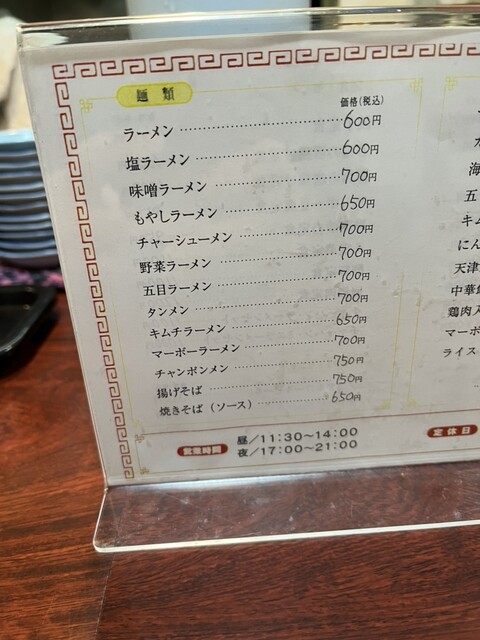 麺類
価格(税込)
ラーメン 600円
塩ラーメン 600円
味噌ラーメン 700円
もやしラーメン 650円
チャーシューメン 700円
野菜ラーメン 700円
五目ラーメン 700円
タンメン 700円
キムチラーメン 650円
マーボーラーメン 700円
チャンポンメン 750円
揚げそば 750円
焼きそば（ソース） 650円
営業時間 昼／11:30~14:00
夜／17:00~21:00
海
五
キム
にん
天津
中華飯
鶏肉入
マーボ
ライス
定休日